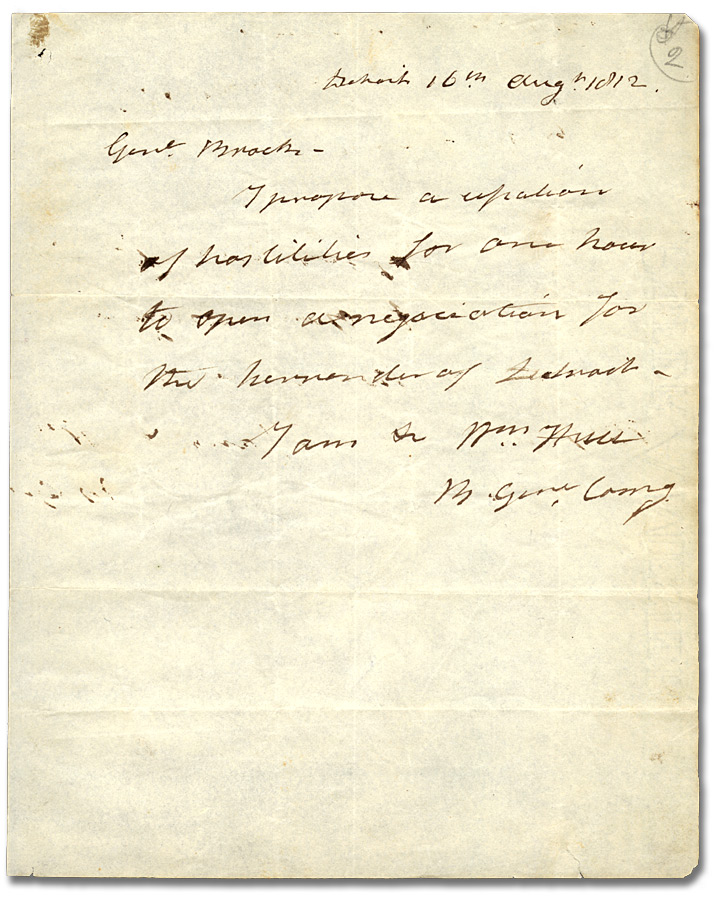 2
Detroit 16th Augt 1812.
Genl Brock -
I propose a cessation
of hostilities for one hour
to open a negociation for
the surrender of Detroit -
I am &c Wm Hull
B. Genl Comg